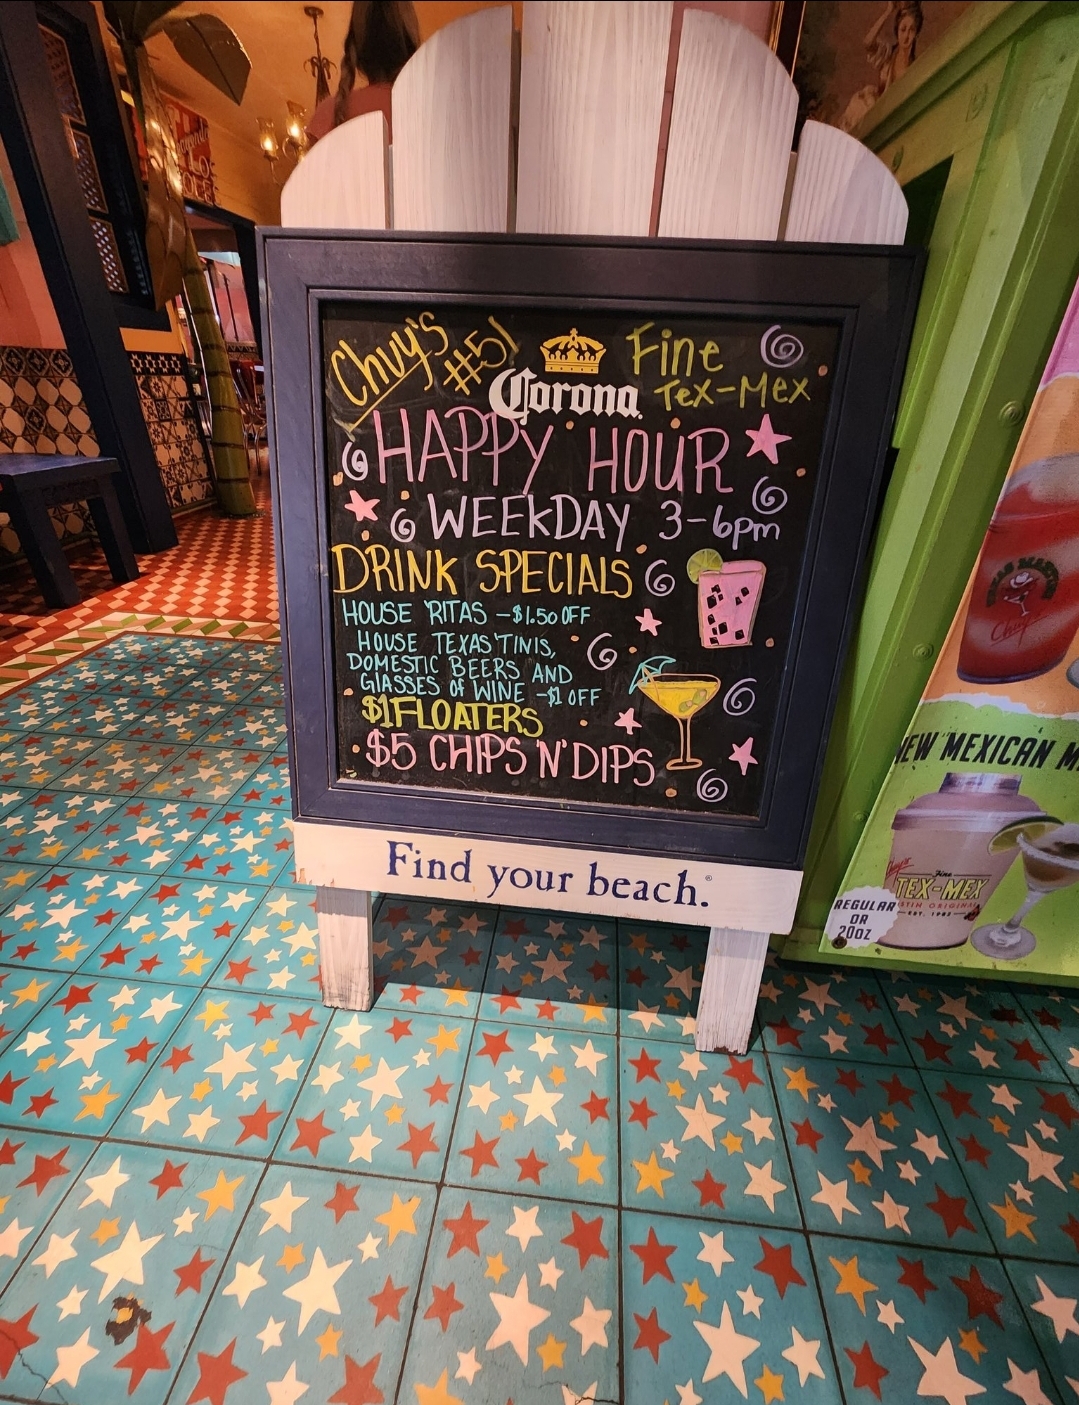 Chuy's #51
Corona
Fine
Tex-Mex
HAPPY HOUR
WEEKDAY 3-6pm
DRINK SPECIALS
HOUSE 'RITAS - $1.50 OFF
HOUSE TEXAS'TINIS,
DOMESTIC BEERS AND
GLASSES OF WINE - $1 OFF
$1 FLOATERS
$5 CHIPS 'N' DIPS
Find your beach.®
TEXAS MARTINI
Chuy's
NEW MEXICAN M
Chuy's
Fine
TEX-MEX
AUSTIN ORIGINAL
EST. 1982
REGULAR
OR
20OZ